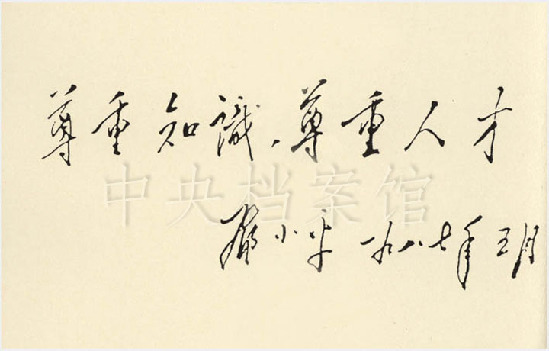 尊重知識、尊重人才
中央档案馆
鄧小平 一九八七年五月